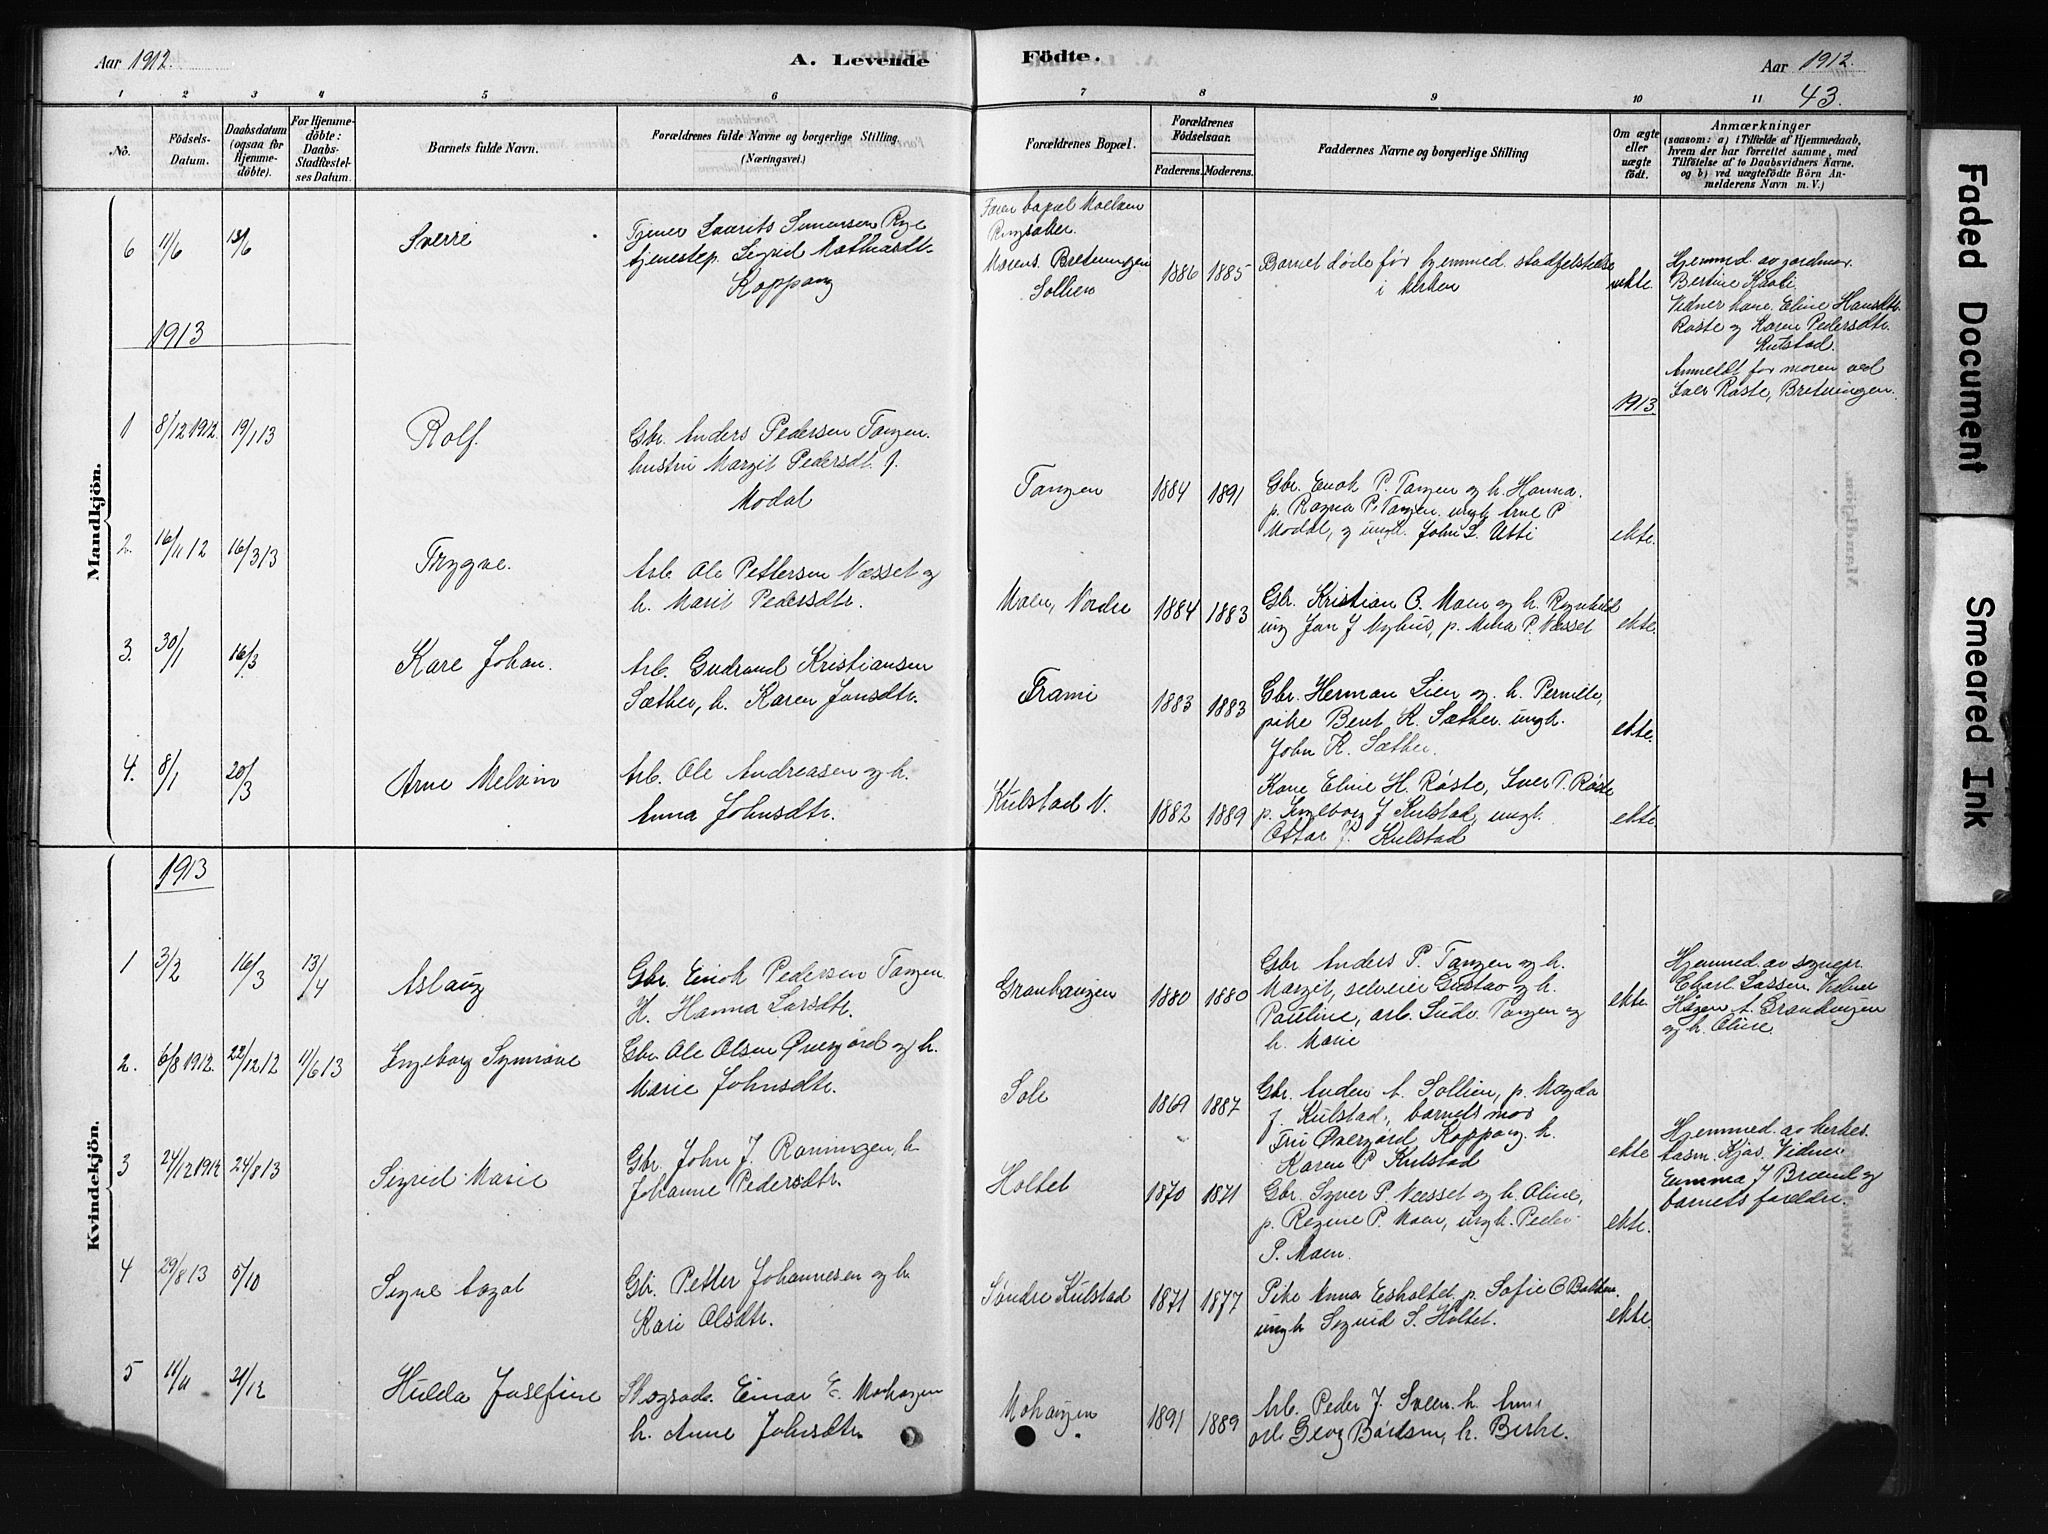 Aar 1912.
A. Levende
Födte.
Aar 1912.
43.
1 2 3 4 5 6 7 8 9 10 11
No.
Födsels-
Datum.
Daabsdatum
(ogsaa for
Hjemme-
döbte).
For Hjemme-
döbte:
Daabs-
Stadfæstel-
ses Datum.
Barnets fulde Navn.
Forældrenes fulde Navne og borgerlige Stilling.
(Næringsvei.)
Forældrenes Bopæl.
Forældrenes
Födselsaar.
Faderens. Moderens.
Faddernes Navne og borgerlige Stilling
Om ægte
eller
uægte
födt.
Anmærkninger
(saasom: a) i Tilfælde af Hjemmedaab,
hvem der har forrettet samme, med
Tilföielse af to Daabsvidners Navne,
og b) ved uægtefödte Börn An-
melderens Navn m. V.)
Mandkjön.
6
11/6
13/6
Sverre
Tjener Laurits Simensen Rye
tjenestep. Sigrid Mathiasdtr.
Koppang
Faren bopæl Moelven
Ringsaker.
Morens. Bretningen
Sollien
1886
1885
Barnet døde før hjemmed. stadfestelse
i kirken
uekte.
Hjemmed. av jordmor.
Bertine
Vidner kone Eline Hansdtr.
Røste og Karen Pedersdtr.
Kulstad.
Anmeldt for moren ved
Iver Røste, Bretningen.
1913
1913
1
8/12 1912.
19/1 13
Rolf.
Gbr. Anders Pedersen Tangen.
hustru Margit Pedersdt. f.
Modal
Tangen
1884
1891
Gbr. Enok P. Tangen og h. Hanna.
p. Ragna P. Tangen. ungk. Arne P
Modal, og ungk. John L. Utti
ekte.
2.
16/11 12
16/3 13
Trygve.
Arb. Ole Pettersen Næsset og
h. Marit Pedersdtr.
Moen, Nordre
1884
1883
Gbr. Kristian O. Moen og h. Ragnhild
ung Jon J Nyhus, p. Mina P. Næsset
ekte.
3.
30/1
16/3
Kåre Johan.
Arb. Gudmund Kristiansen
Sæther, h. Karen Jonsdtr.
Frami
1883
1883
Gbr. Herman Lien og h. Pernille,
pike Berit K. Sæther. ungk.
John K. Sæther.
ekte.
4.
8/1
20/3
Arne Melvin
Arb. Ole Andreasen og h.
Anna Johnsdtr.
Kulstad N.
1882
1889
Kone Eline H. Røste, Iver T. Røste
p. Ingeborg J Kulstad, ungk.
Ottar J. Kulstad
ekte.
Kvindekjön.
1913
1
3/2
16/3
13/4
Aslaug
Gbr. Enok Pedersen Tangen
H. Hanna Larsdtr.
Granhaugen
1880
1880
Gbr. Anders P. Tangen og h.
Margit, selveier Gustav og h.
Pauline, arb. Ludv. Tangen og
h. Marie
ekte.
Hjemmed. av sognepr.
Charl. Lassen. Vidner
Hågen A. Granhaugen
og h. Oline
2.
6/8 1912.
22/12 12
11/6 13
Ingeborg Synnøve
Gbr. Ole Olsen Øvergård og h.
Marie Johnsdtr.
Sole
1869
1887
Gbr. Anders A. Sollien, p. Magda
J. Kulstad, barnets mor
Fru Øvergård, Koppang. h.
Karen P Kulstad
ekte
Hjemmed. av kirkes.
Aasm. Kjøs. Vidner
Emma J Brænd og
barnets foreldre.
3
24/12 1912
24/8 13
Sigrid Marie
Gbr. John J. Ranningen, h.
Johanne Pedersdtr.
Holtet
1870
1871
Gbr. Syver P. Næsset og h. Oline,
p. Regine P. Moen, ungk. Peder
P. Moen.
ekte.
4
29/8 13
5/10
Signe Aagot
Gbr. Petter Johannesen og h.
Kari Olsdtr.
Søndre Kulstad
1871
1877
Pike Anna Esholtet p. Sofie O Bakken
ungk Sigurd S. Holtet.
ekte.
5
11/11
21/12
Hulda Josefine
Skogsarb. Einar E. Mohaugen
h. Anne Johnsdtr.
Mohaugen
1891
1889
Arb. Peder J. Sveen. h. Anne
arb. Georg Bårdsen, h. Birthe.
Faded Document
Smeared Ink